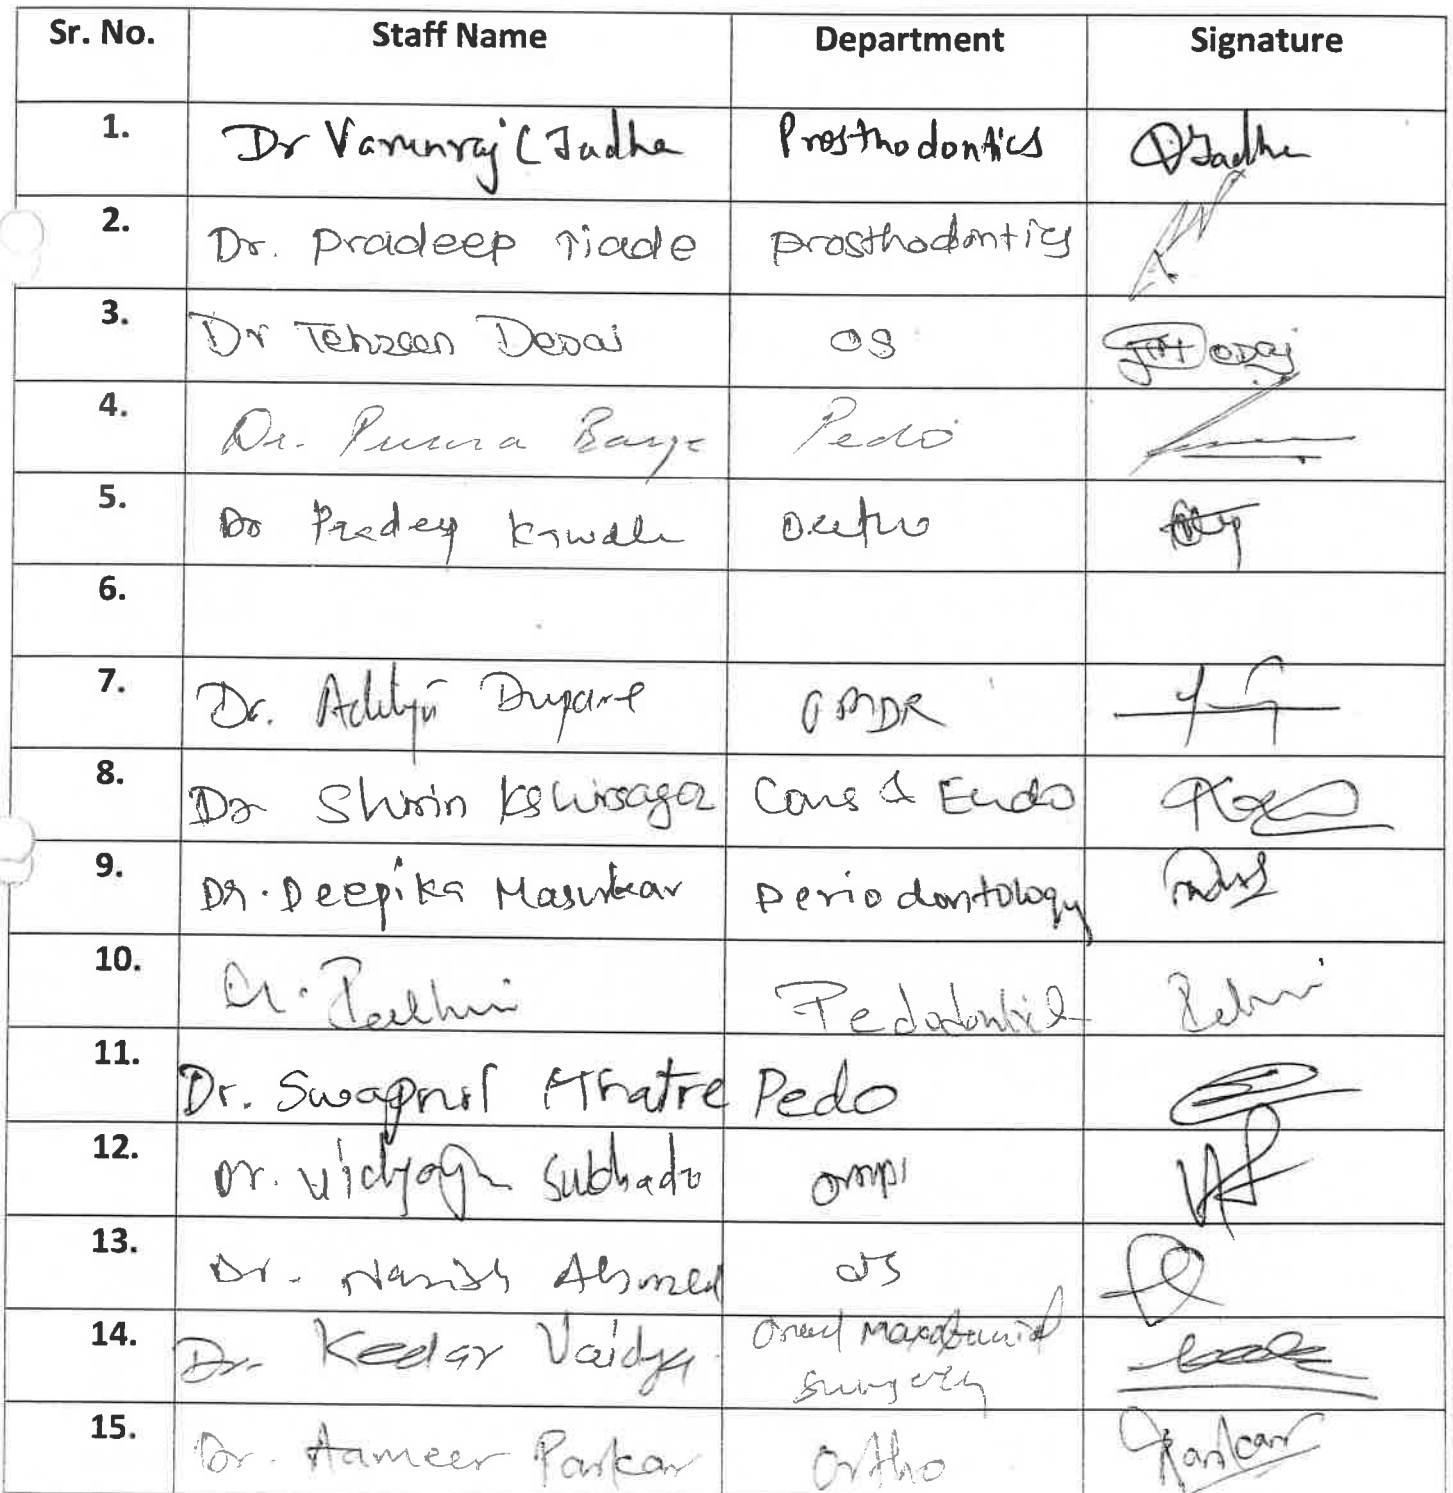 Sr. No. Staff Name Department Signature
1. Dr Varunraj C Jadha Prosthodontics Jadha
2. Dr. Pradeep Tiade prosthodontics
3. Dr Tehzeen Desai OS
4. Dr. Purva Barge Pedo
5. Dr Pradeep Kawale Ortho
6.
7. Dr. Aditya Dupare OMDR
8. Dr Shirin Kshirsagar Cons & Endo
9. Dr. Deepika Masurkar Periodontology
10. Dr. Pedodontics
11. Dr. Swapnil Mhatre Pedo
12. Dr. Vidyadhar ompi
13. Dr. Ahmed OS
14. Dr. Kedar Vaidya Oral Maxofacial
surgery
15. Dr. Aameer Parkar Ortho Parkar